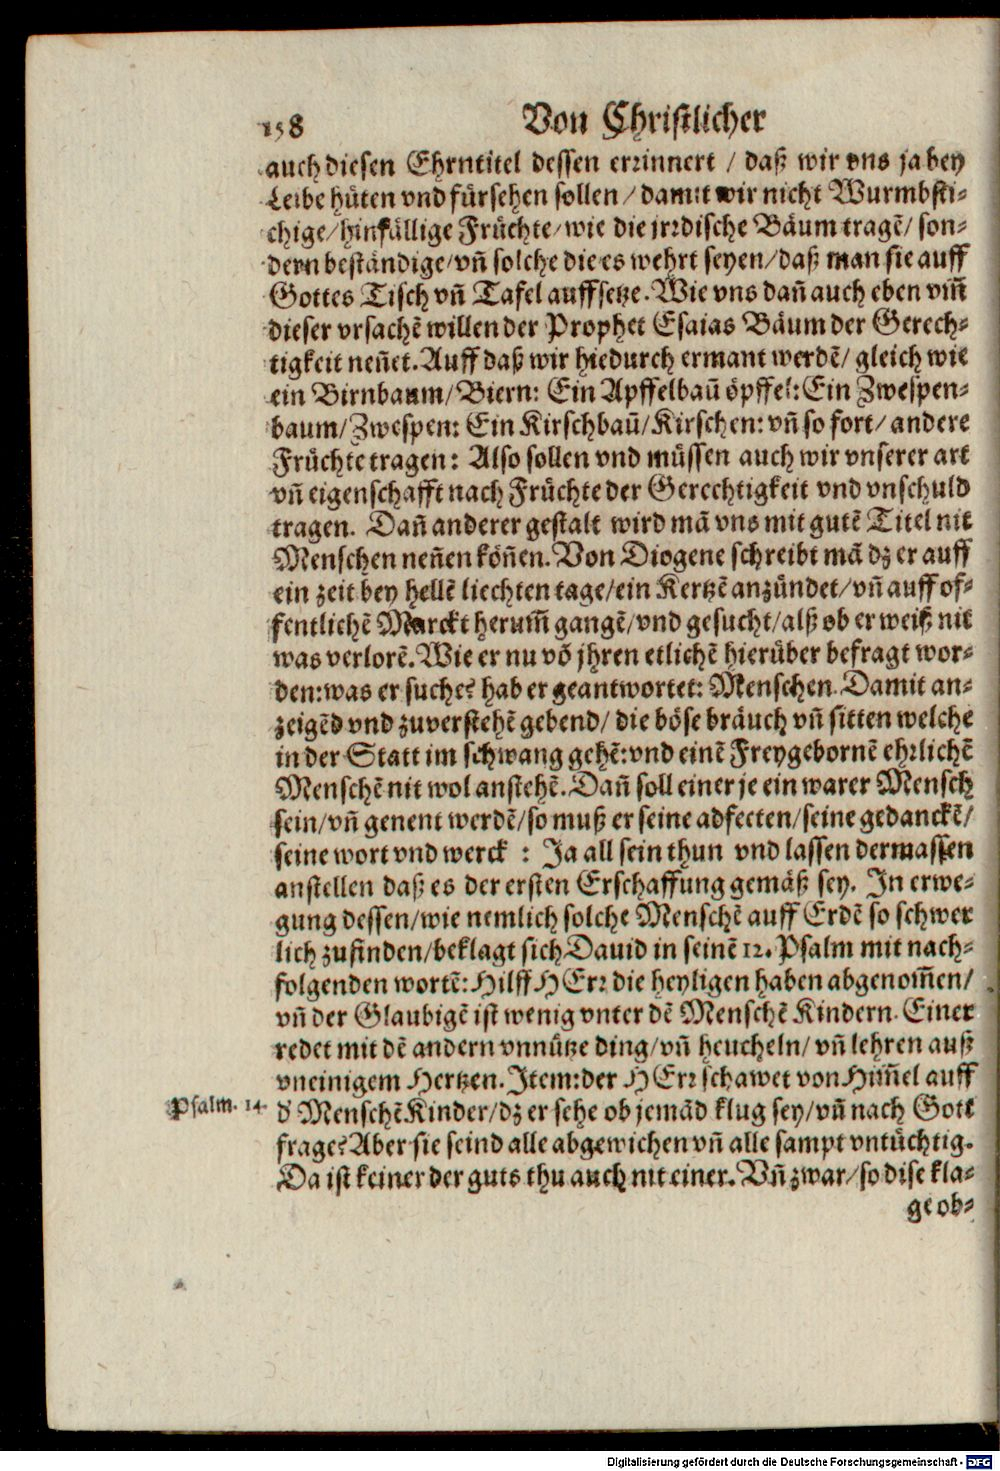 158 Von Christlicher
auch diesen Ehrntitel dessen errinnert / daß wir vns ja bey
Leibe hüten vnd fürsehen sollen / damit wir nicht Wurmbsti-
chige / hinfällige Früchte / wie die jrrdische Bäum tragẽ / son-
dern beständige / vñ solche die es wehrt seyen / daß man sie auff
Gottes Tisch vñ Tafel auffsetze. Wie vns dañ auch eben vm̃
dieser vrsachẽ willen der Prophet Esaias Bäum der Gerech-
tigkeit neñet. Auff daß wir hiedurch ermant werdẽ / gleich wie
ein Birnbaum / Biern: Ein Apffelbaũ öpffel: Ein Zwespen-
baum / Zwespen: Ein Kirschbaũ / Kirschen: vñ so fort / andere
Früchte tragen: Also sollen vnd müssen auch wir vnserer art
vñ eigenschafft nach Früchte der Gerechtigkeit vnd vnschuld
tragen. Dañ anderer gestalt wird mã vns mit gutẽ Titel nit
Menschen neñen köñen. Von Diogene schreibt mã dz er auff
ein zeit bey hellẽ liechten tage / ein Kertzẽ anzündet / vñ auff of-
fentlichẽ Marckt herum̃ gangẽ / vnd gesucht / alß ob er weiß nit
was verlorẽ. Wie er nu võ jhren etlichẽ hierüber befragt wor-
den: was er suche? hab er geantwortet: Menschen. Damit an-
zeigẽd vnd zuverstehẽ gebend / die böse bräuch vñ sitten welche
in der Statt im schwang gehẽ: vnd einẽ Freygebornẽ ehrlichẽ
Menschẽ nit wol anstehẽ. Dañ soll einer je ein warer Mensch
sein / vñ genent werdẽ / so muß er seine adfecten / seine gedanckẽ /
seine wort vnd werck : Ja all sein thun vnd lassen dermassen
anstellen daß es der ersten Erschaffung gemäß sey. In erwe-
gung dessen / wie nemlich solche Menschẽ auff Erdẽ so schwer
lich zufinden / beklagt sich Dauid in seinẽ 12. Psalm mit nach-
folgenden wortẽ: Hilff HErr die heyligen haben abgenom̃en /
vñ der Glaubigẽ ist wenig vnter dẽ Menschẽ Kindern. Einer
redet mit dẽ andern vnnütze ding / vñ heucheln / vñ lehren auß
vneinigem Hertzen. Item: der HErr schawet von Him̃el auff
Psalm. 14. d' Menschẽ Kinder / dz er sehe ob jemãd klug sey / vñ nach Gott
frage? Aber sie seind alle abgewichen vñ alle sampt vntüchtig.
Da ist keiner der guts thu auch nit einer. Vñ zwar / so dise kla-
ge ob-
Digitalisierung gefördert durch die Deutsche Forschungsgemeinschaft - DFG